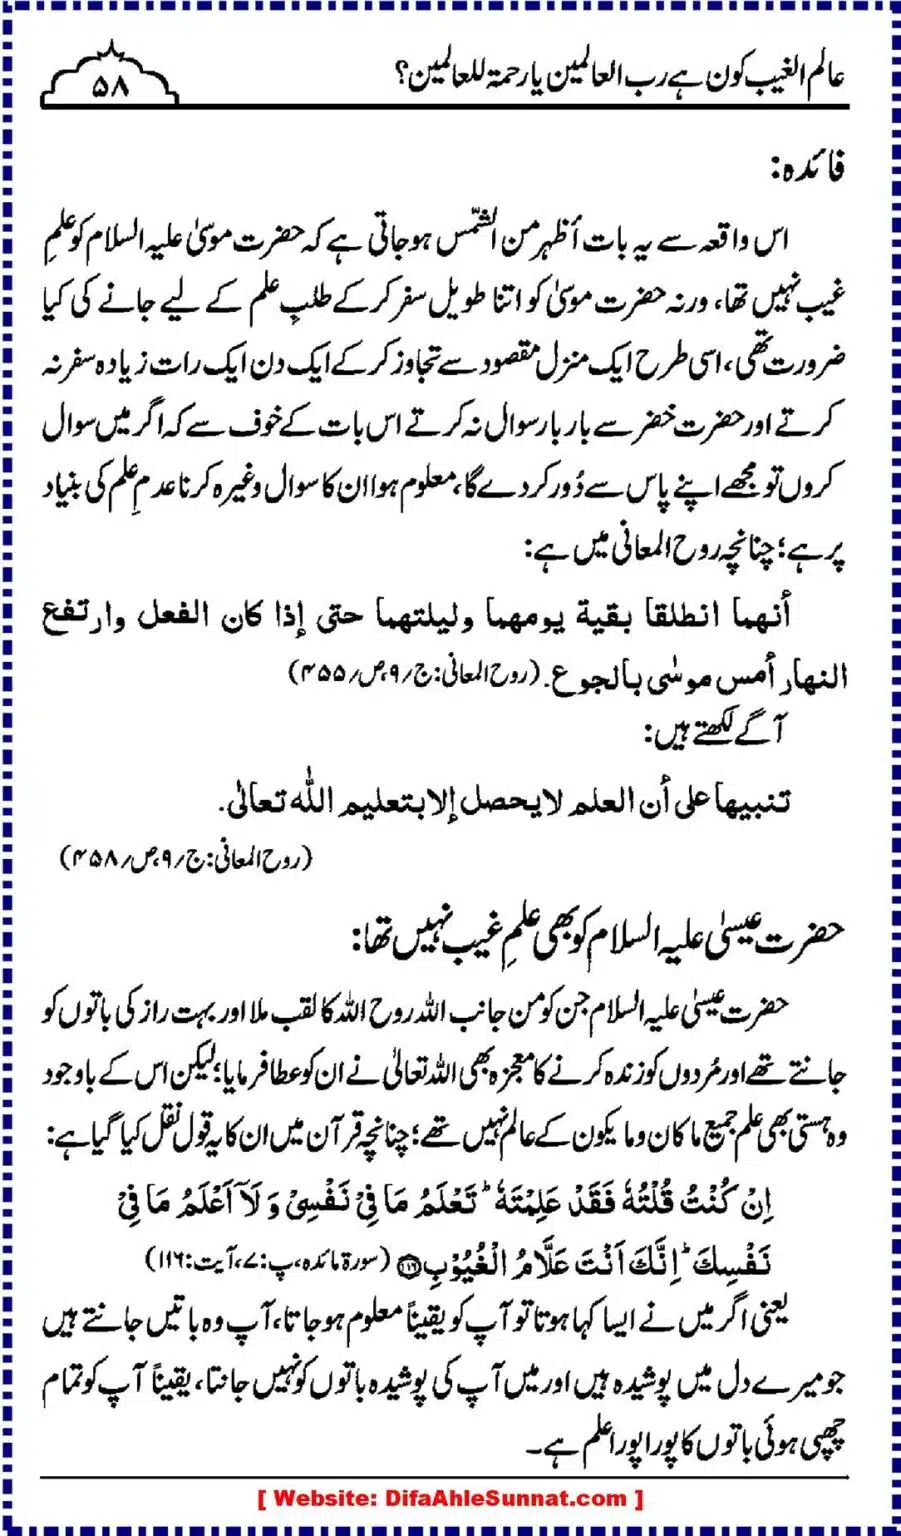 عالم الغیب کون ہے رب العالمین یا رحمۃ للعالمین؟
۵۸
فائدہ:
اس واقعہ سے یہ بات أظہر من الشّمس ہوجاتی ہے کہ حضرت موسیٰ علیہ السلام کو علمِ
غیب نہیں تھا، ورنہ حضرت موسیٰ کو اتنا طویل سفر کرکے طلبِ علم کے لیے جانے کی کیا
ضرورت تھی، اسی طرح ایک منزل مقصود سے تجاوز کرکے ایک دن ایک رات زیادہ سفر نہ
کرتے اور حضرت خضر سے بار بار سوال نہ کرتے اس بات کے خوف سے کہ اگر میں سوال
کروں تو مجھے اپنے پاس سے دُور کردے گا، معلوم ہوا ان کا سوال وغیرہ کرنا عدمِ علم کی بنیاد
پر ہے؛ چنانچہ روح المعانی میں ہے:
أنهما انطلقا بقية يومهما وليلتهما حتى إذا كان الفعل وارتفع
النهار أمس موسٰى بالجوع. (روح المعانی: ج؍۹، ص؍۴۵۵)
آگے لکھتے ہیں:
تنبيها على أن العلم لا يحصل إلا بتعليم الله تعالٰى.
(روح المعانی: ج؍۹، ص؍۴۵۸)
حضرت عیسیٰ علیہ السلام کو بھی علمِ غیب نہیں تھا:
حضرت عیسیٰ علیہ السلام جن کو من جانب اللہ روح اللہ کا لقب ملا اور بہت راز کی باتوں کو
جانتے تھے اور مُردوں کو زندہ کرنے کا معجزہ بھی اللہ تعالیٰ نے ان کو عطا فرمایا؛ لیکن اس کے باوجود
وہ ہستی بھی علم جمیع ما کان وما یکون کے عالم نہیں تھے؛ چنانچہ قرآن میں ان کا یہ قول نقل کیا گیا ہے:
اِنْ كُنْتُ قُلْتُهٗ فَقَدْ عَلِمْتَهٗ ؕ تَعْلَمُ مَا فِيْ نَفْسِيْ وَ لَاۤ اَعْلَمُ مَا فِيْ
نَفْسِكَ ؕ اِنَّكَ اَنْتَ عَلَّامُ الْغُيُوْبِ ۝۱۱۶ (سورۃ مائدہ، پ: ۷، آیت: ۱۱۶)
یعنی اگر میں نے ایسا کہا ہوتا تو آپ کو یقیناً معلوم ہوجاتا، آپ وہ باتیں جانتے ہیں
جو میرے دل میں پوشیدہ ہیں اور میں آپ کی پوشیدہ باتوں کو نہیں جانتا، یقیناً آپ کو تمام
چھپی ہوئی باتوں کا پورا پورا علم ہے۔
[ Website: DifaAhleSunnat.com ]